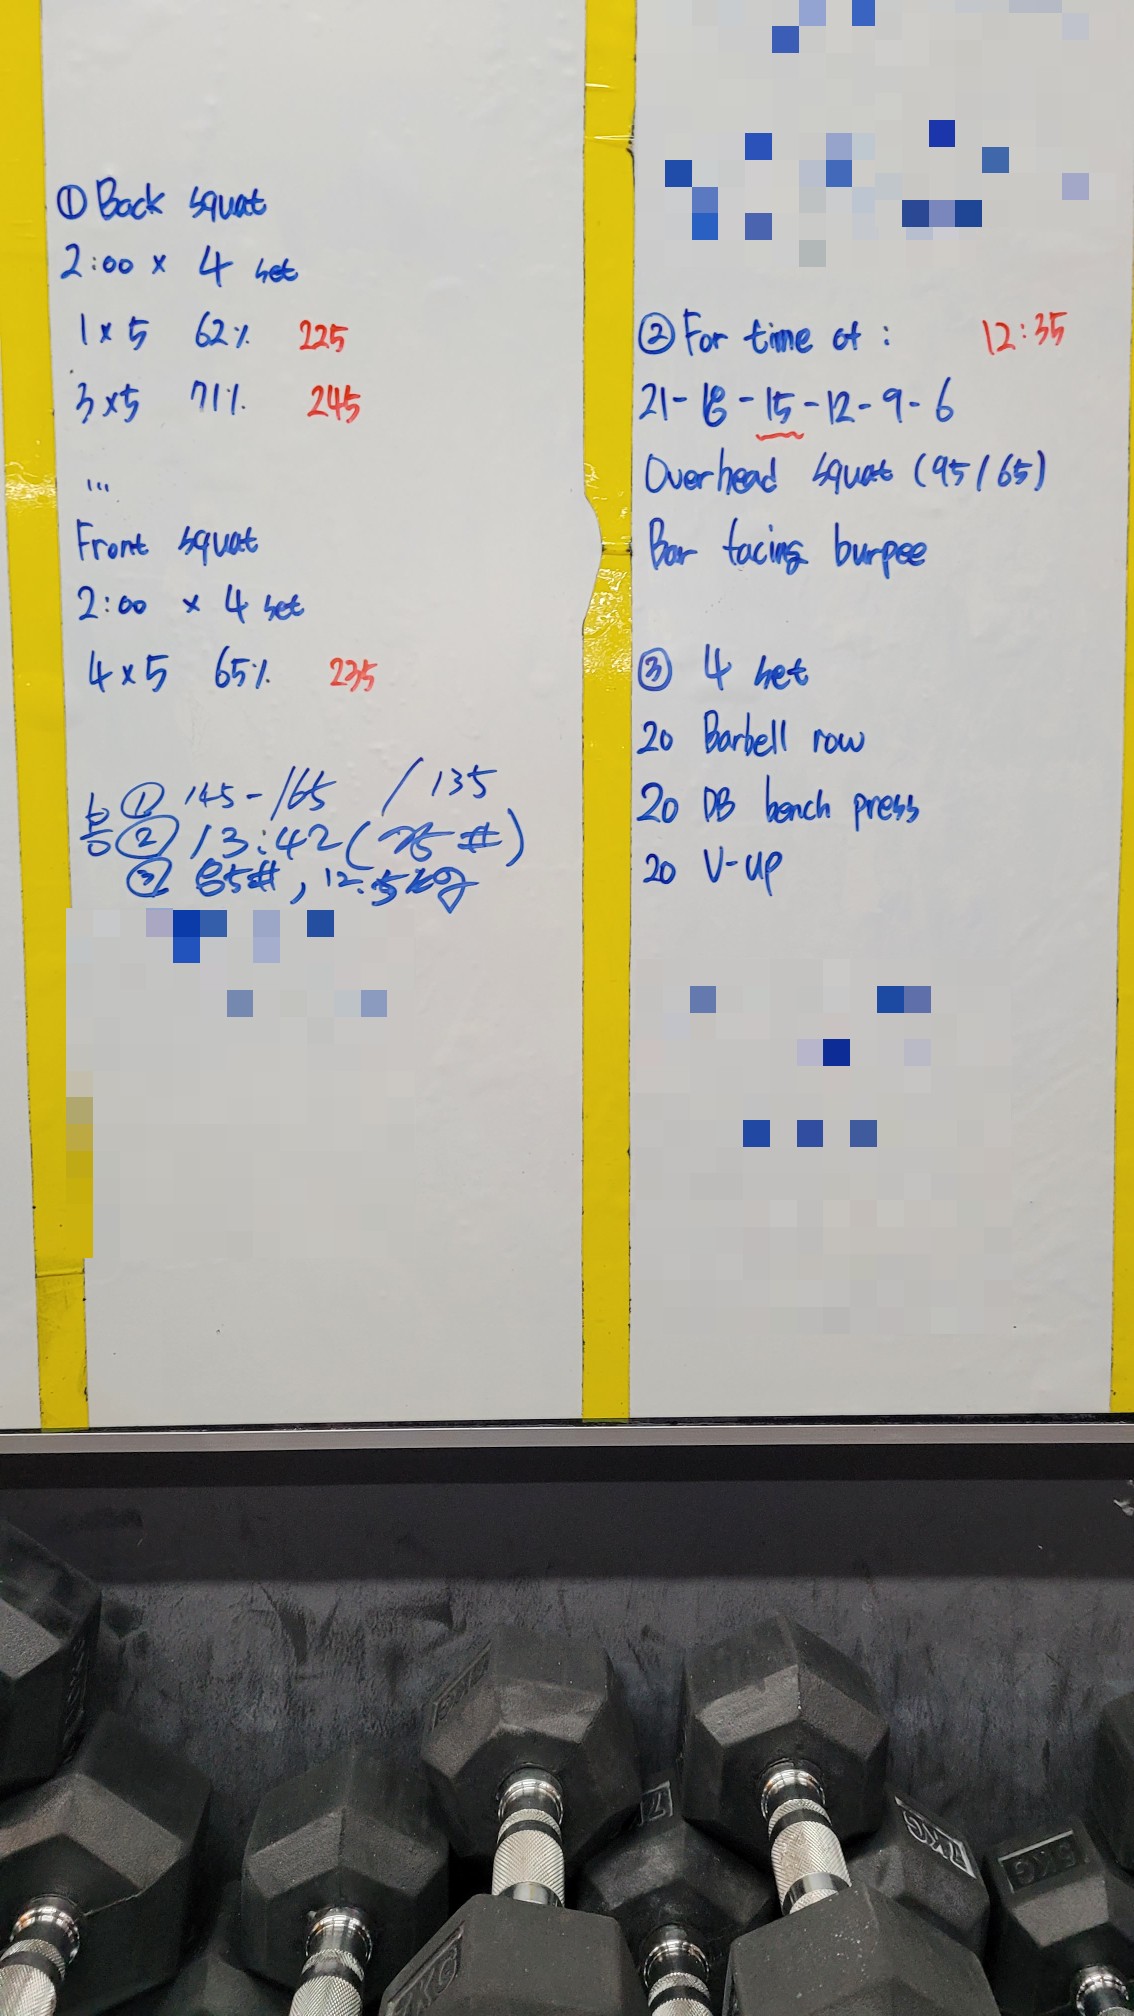 ① Back squat
2:00 × 4 set
1 × 5 62% 225
3 × 5 71% 245
...
Front squat
2:00 × 4 set
4 × 5 65% 235
봉 ① 145-165 / 135
② 13:42 (75#)
③ 85#, 12.5kg
② For time of : 12:35
21-18-15-12-9-6
Overhead squat (95/65)
Bar facing burpee
③ 4 set
20 Barbell row
20 DB bench press
20 V-up
7KG
5KG
7KG